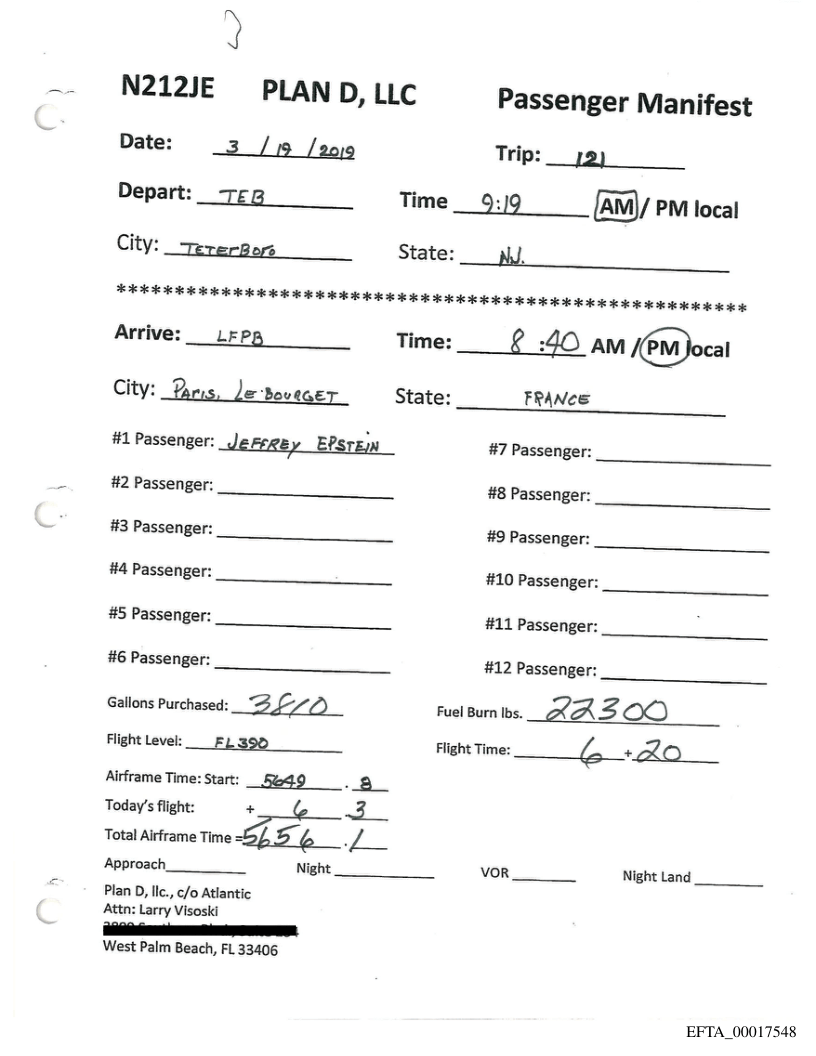 N212JE PLAN D, LLC Passenger Manifest
Date: 3 / 19 / 2019 Trip: 121
Depart: TEB Time 9:19 AM / PM local
City: TETERBORO State: NJ.
******************************************************
Arrive: LFPB Time: 8:40 AM / PM local
City: PARIS, LE BOURGET State: FRANCE
#1 Passenger: JEFFREY EPSTEIN #7 Passenger:
#2 Passenger: #8 Passenger:
#3 Passenger: #9 Passenger:
#4 Passenger: #10 Passenger:
#5 Passenger: #11 Passenger:
#6 Passenger: #12 Passenger:
Gallons Purchased: 3810 Fuel Burn lbs. 22300
Flight Level: FL390 Flight Time: 6 + 20
Airframe Time: Start: 5649 . 8
Today's flight: + 6 . 3
Total Airframe Time = 5656 . 1
Approach Night VOR Night Land
Plan D, llc., c/o Atlantic
Attn: Larry Visoski
West Palm Beach, FL 33406
EFTA_00017548